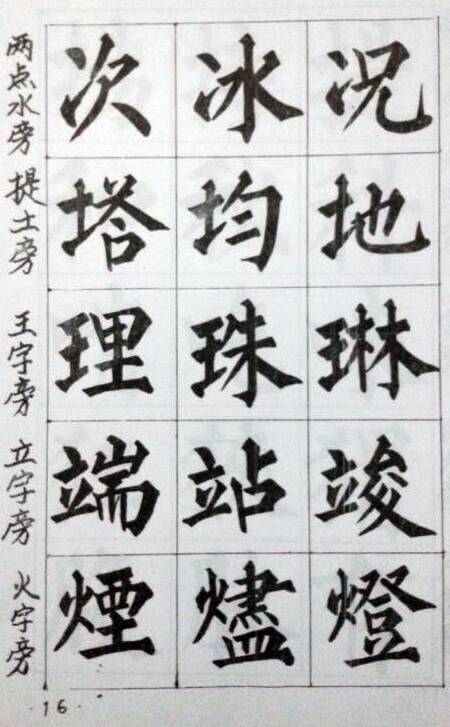 两点水旁 次 冰 况
提土旁 塔 均 地
王字旁 理 珠 琳
立字旁 端 站 竣
火字旁 煙 燼 燈
·16·